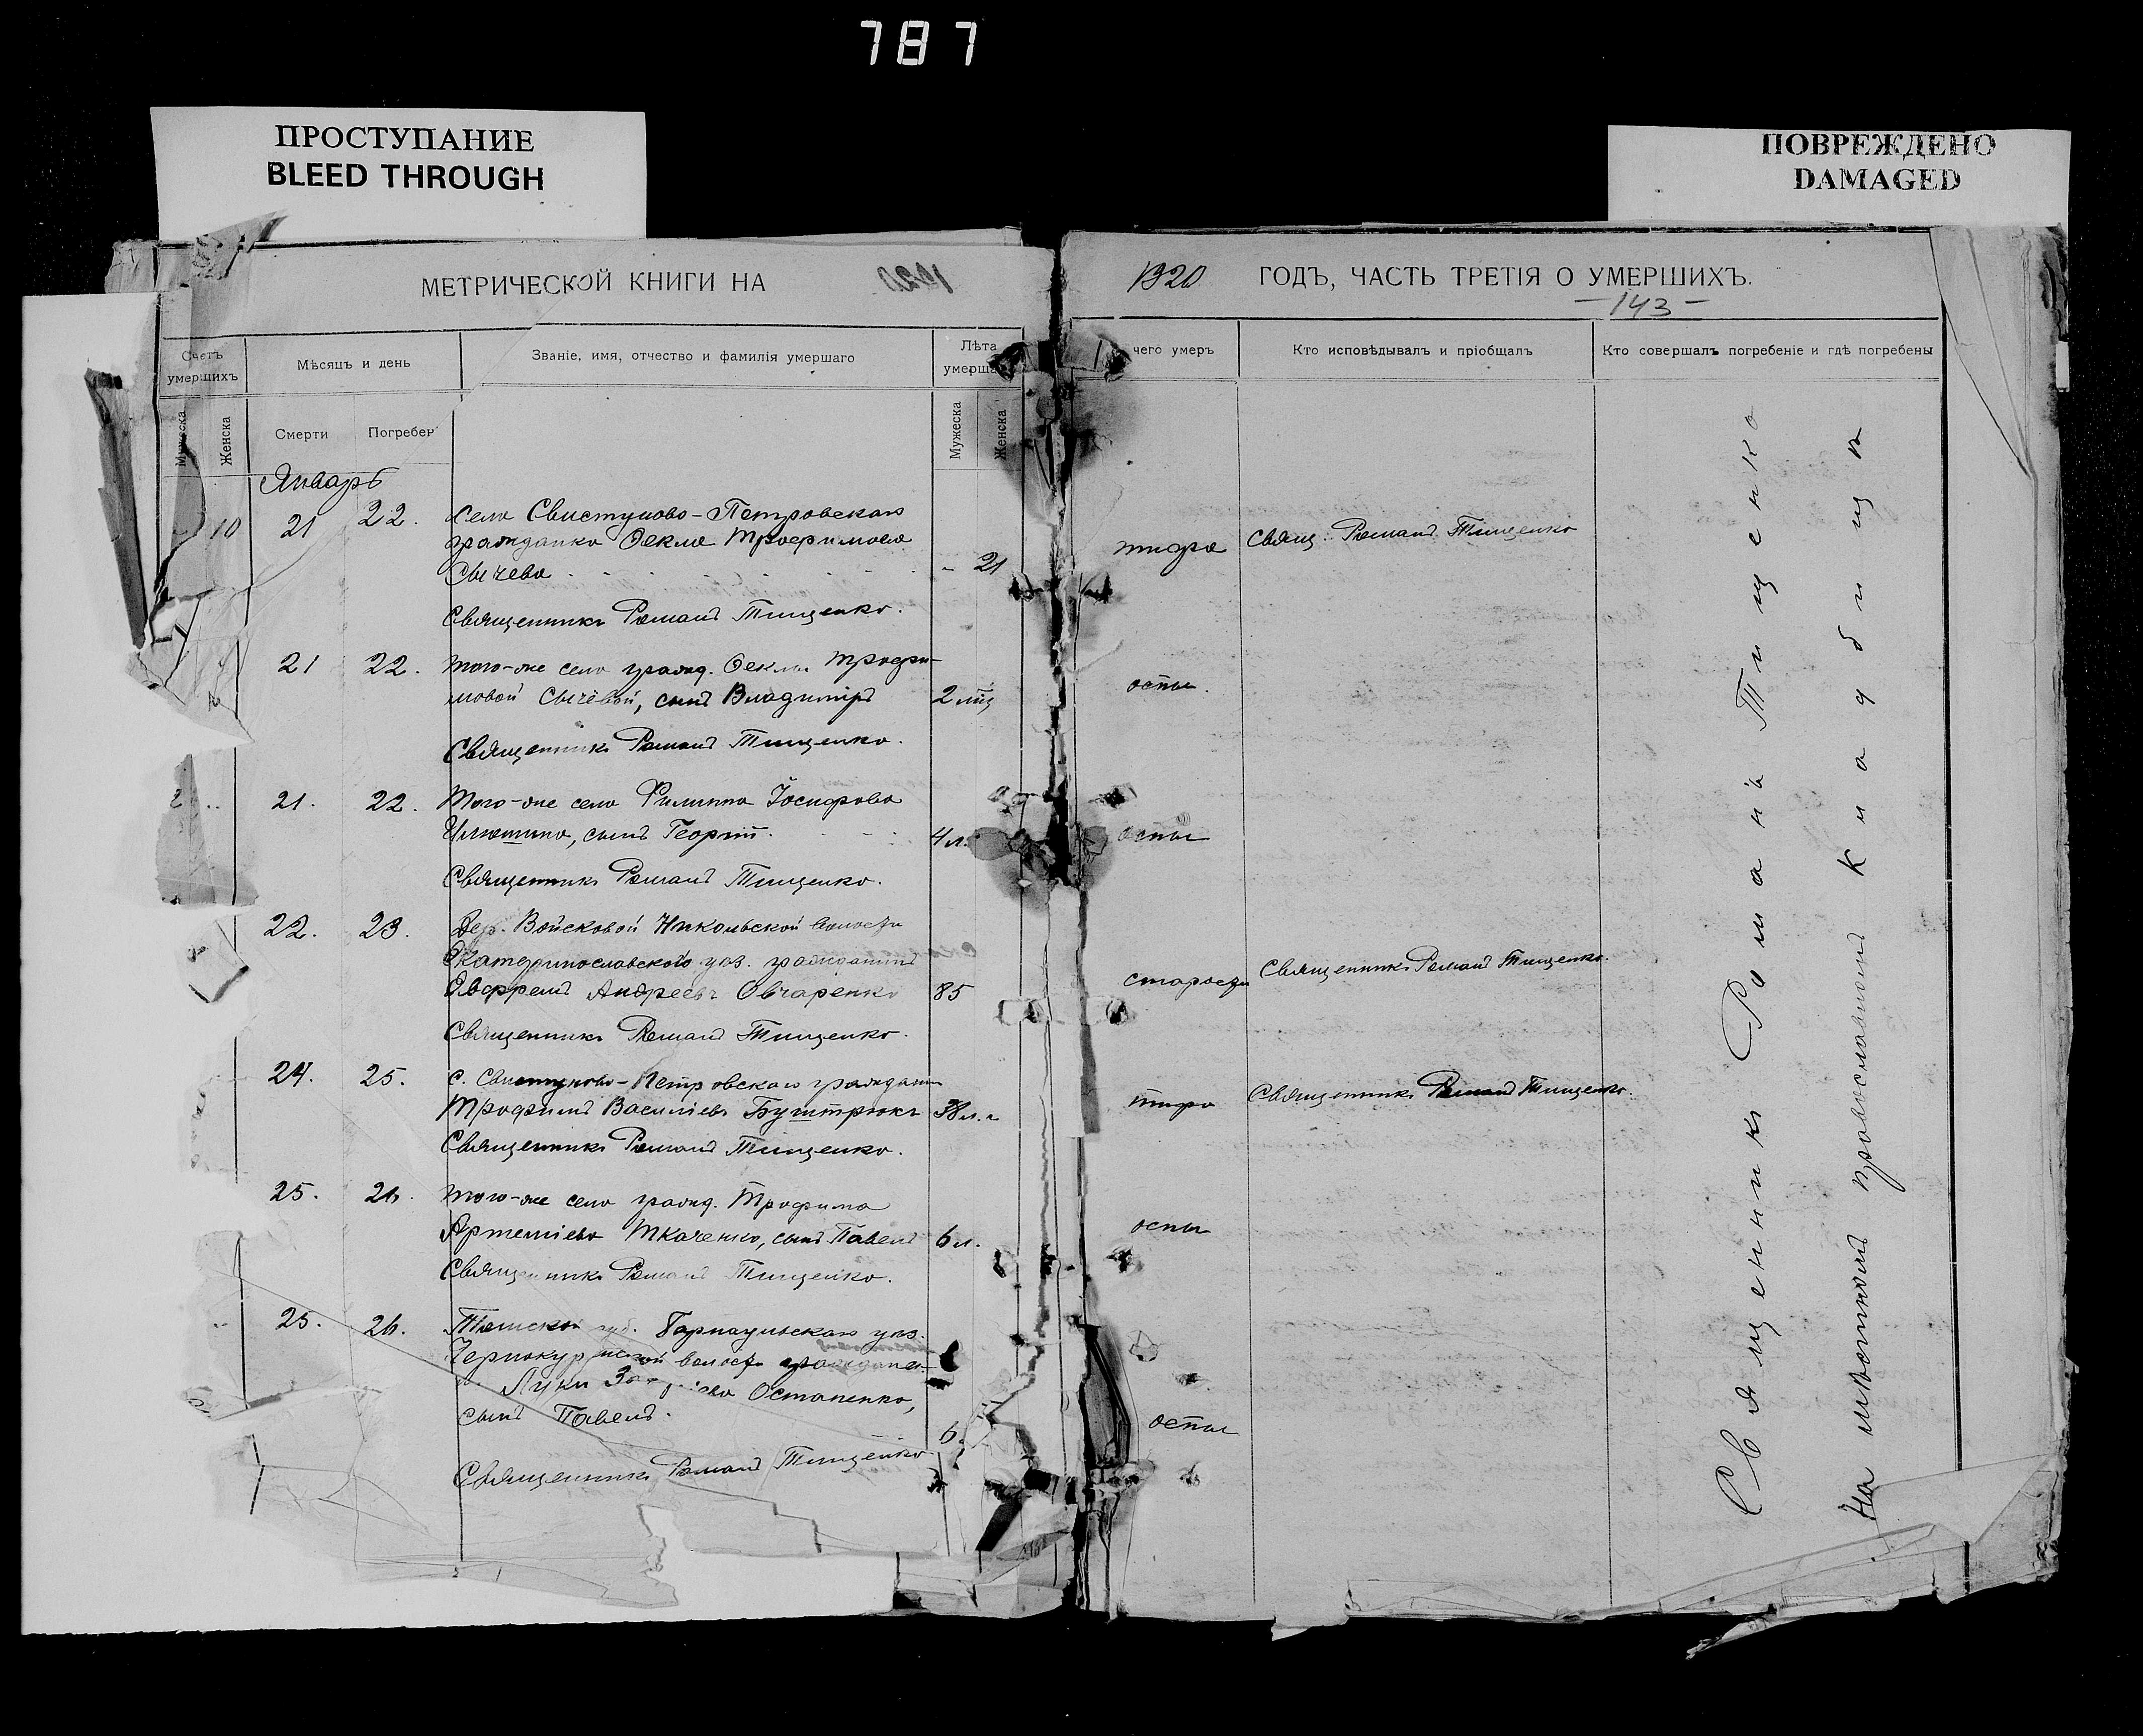 787
ПРОСТУПАНИЕ
BLEED THROUGH
ПОВРЕЖДЕНО
DAMAGED
МЕТРИЧЕСКОЙ КНИГИ НА
1920 ГОДЪ, ЧАСТЬ ТРЕТІЯ О УМЕРШИХЪ.
- 143 -
Счетъ умершихъ
Мѣсяцъ и день
Званіе, имя, отчество и фамилія умершаго
Лѣта умерша
чего умеръ
Кто исповѣдывалъ и пріобщалъ
Кто совершалъ погребеніе и гдѣ погребены
Мужеска
Женска
Смерти
Погребен
Мужеска
Женска
Январь
10 21 22. села Свистуново-Петровскаго
гражданка Ѳекла Трофимова
Сычева - 21 тифа Свящ. Романъ Тищенко
Священникъ Романъ Тищенко.
21 22. того-же села гражд. Ѳеклы Трофи-
мовой Сычёвой, сынъ Владиміръ 2 мц оспы.
Священникъ Романъ Тищенко.
21. 22. Того-же села Филиппа Іосифова
Илюшина, сынъ Георгій. 4 л. оспы
Священникъ Романъ Тищенко.
22. 23. Дер. Войсковой Никольской волости
Екатеринославского уѣз. гражданинъ
Андреевъ Овчаренко 85 старости Священникъ Романъ Тищенко.
Священникъ Романъ Тищенко.
24. 25. с. Свистуново-Петровскаго гражданин
Трофимъ Василіевъ 38 л. тифа Священникъ Романъ Тищенко.
Священникъ Романъ Тищенко.
25. 26. того-же села гражд. Трофима
Артеміева Ткаченко, сынъ Павелъ 6 л. оспы
Священникъ Романъ Тищенко.
25. 26. Томской губ. Барнаульскаго уѣз.
волости
Луки Остапенко,
сынъ Павелъ. 6. оспы
Священникъ Романъ Тищенко
Священникъ Романъ Тищенко
На мѣстномъ православномъ кладбищѣ